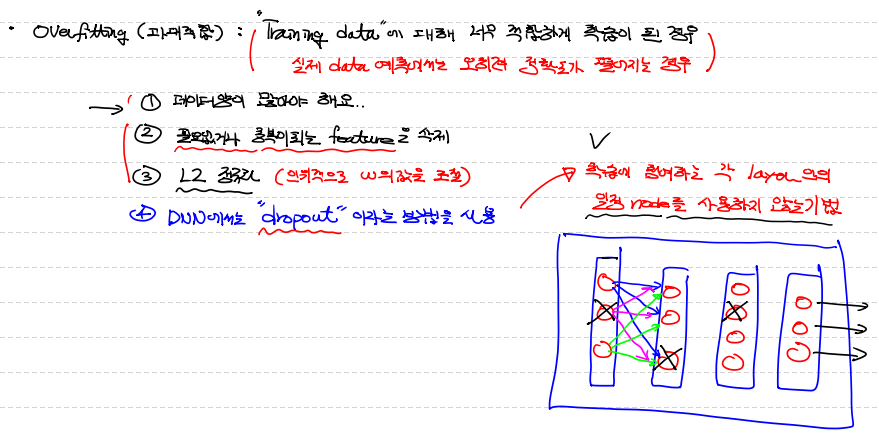 • Overfitting (과대적합) : "Training data"에 대해 너무 적합하게 학습이 된 경우
( 실제 data 예측에서는 오히려 정확도가 떨어지는 경우 )
→ ① 데이터량이 많아야 해요..
② 필요없거나 중복이되는 feature를 삭제
③ L2 정규화 (인위적으로 W의 값을 조절)
④ DNN에서는 "dropout" 이라는 방법을 사용
→ 학습에 참여하는 각 layer 안의
일정 node를 사용하지 않는 기법